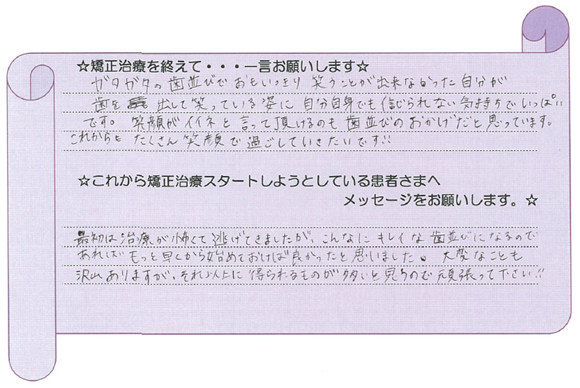 ☆矯正治療を終えて・・・一言お願いします☆
ガタガタの歯並びでおもいっきり笑うことが出来なかった自分が
歯を出して笑っている姿に自分自身でも信じられない気持ちでいっぱい
です。笑顔がイイネと言って頂けるのも歯並びのおかげだと思っています。
これからもたくさん笑顔で過ごしていきたいです!!
☆これから矯正治療スタートしようとしている患者さまへ
メッセージをお願いします。☆
最初は治療が怖くて逃げてきましたが、こんなにキレイな歯並びになるので
あればもっと早くから始めておけば良かったと思いました。大変なことも
沢山ありますが、それ以上に得られるものが多いと思うので頑張って下さい!!